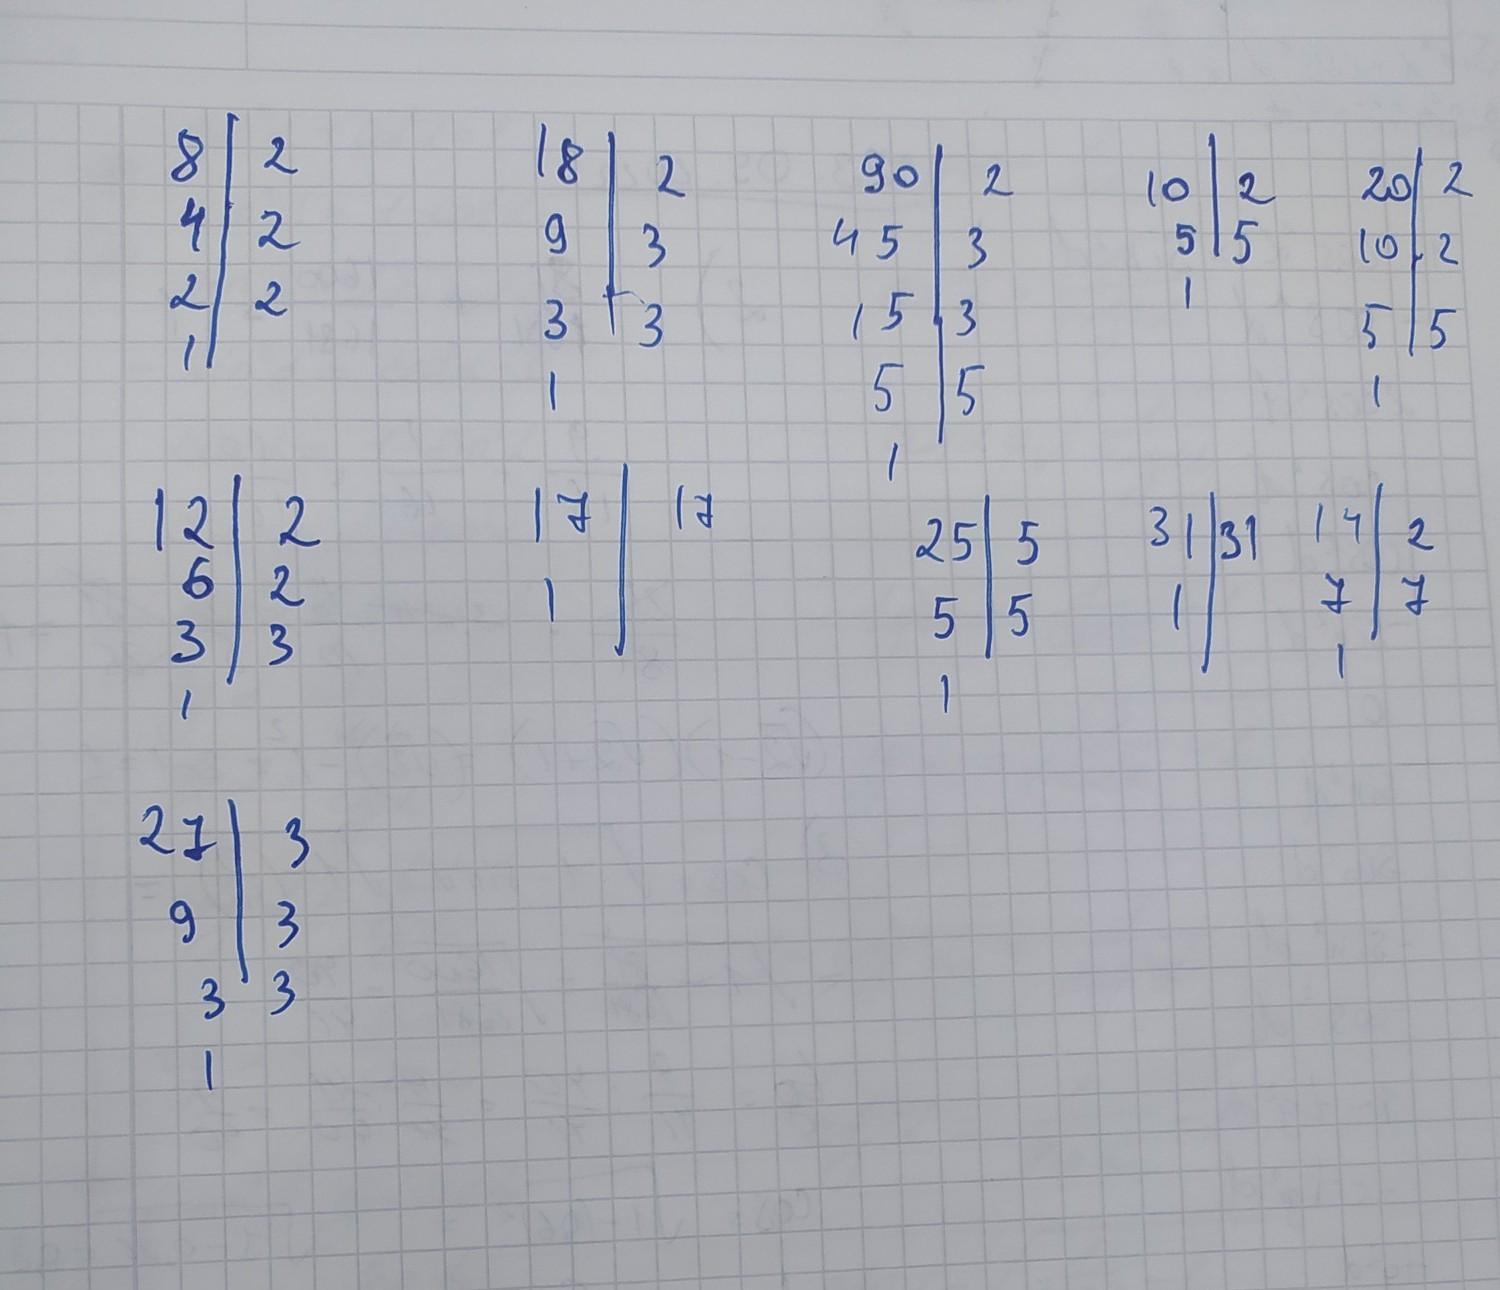 8 | 2 18 | 2 90 | 2 10 | 2 20 | 2
4 | 2 9 | 3 45 | 3 5 | 5 10 | 2
2 | 2 3 | 3 15 | 3 1 5 | 5
1 | 1 5 | 5 1
1
12 | 2 17 | 17 25 | 5 31 | 31 14 | 2
6 | 2 1 | 5 | 5 1 | 7 | 7
3 | 3 1 1
1
27 | 3
9 | 3
3 3
1